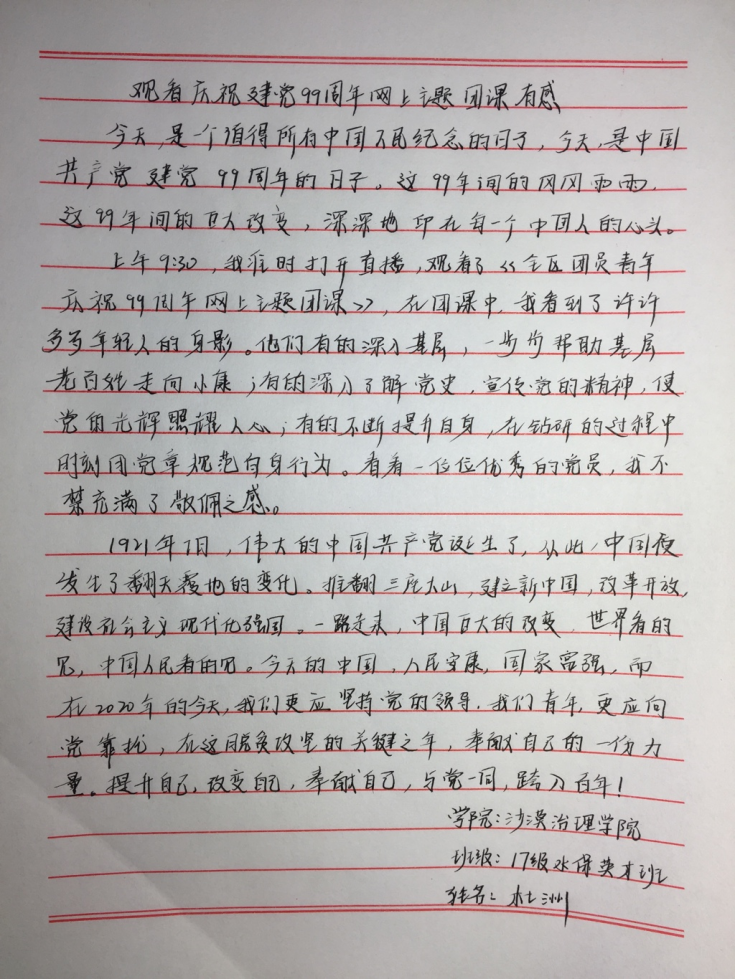 观看庆祝建党99周年网上主题团课有感
今天,是一个值得所有中国人民纪念的日子,今天,是中国
共产党建党99周年的日子。这99年间的风风雨雨,
这99年间的巨大改变,深深地印在每一个中国人的心头。
上午9:30,我准时打开直播,观看了《全区团员青年
庆祝99周年网上主题团课》,在团课中,我看到了许许
多多年轻人的身影。他们有的深入基层,一步步帮助基层
老百姓走向小康;有的深入了解党史,宣传党的精神,使
党的光辉照耀人心;有的不断提升自身,在钻研的过程中
时刻用党章规范自身行为。看着一位位优秀的党员,我不
禁充满了敬佩之感。
1921年7月,伟大的中国共产党诞生了,从此,中国便
发生了翻天覆地的变化。推翻三座大山,建立新中国,改革开放,
建设社会主义现代化强国。一路走来,中国巨大的改变,世界看的
见,中国人民看的见。今天的中国,人民安康,国家富强,而
在2020年的今天,我们更应坚持党的领导,我们青年,更应向
党靠拢,在这脱贫攻坚的关键之年,奉献自己的一份力
量。提升自己,改变自己,奉献自己,与党一同,踏入百年!
学院:沙漠治理学院
班级:17级水保英才班
姓名:杜洲